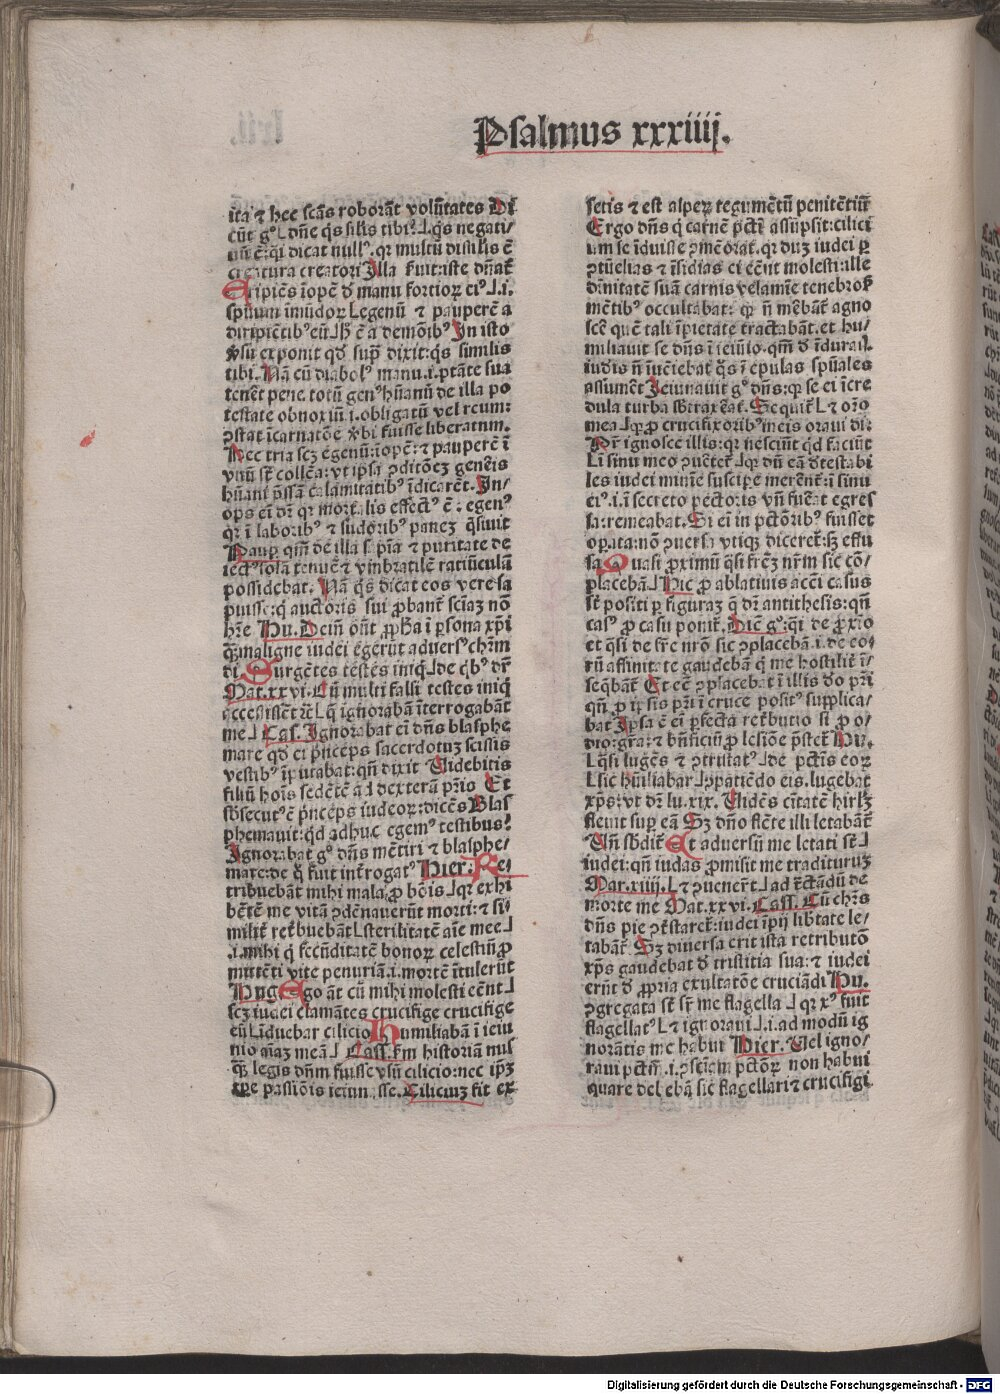 Psalmus xxxiiij.
ita ⁊ hec scãs roborãt volũtates Di
cũt gͦ L dñe q̃s silis tibi?⅃ q̃s negati/
uũ ẽ: q̃i dicat nullꝰ. qꝛ multũ disilis ẽ
creatura creatori Illa fuit: iste dñat̃
Eripiẽs iopẽ đ manu fortioꝝ eiꝰ⅃.i.
spũum ĩmũdoꝝ Legenũ ⁊ pauperẽ a
diripiẽtibꝰ eũ⅃ hͨ ẽ a demõibꝰ In isto
v̾su exponit qđ supᵃ dixit: q̃s similis
tibi. Nã cũ diabolꝰ manu .i. ptãte sua
tenẽt pene totũ genꝰ hũanũ de illa po
testate obnoxiũ .i. obligatũ vel reum:
ꝯstat ĩcarnatõe v̾bi fuisse liberatum.
Hec tria scꝫ egenũ: iopẽ: ⁊ pauperẽ ĩ
vnũ st̃ collẽa: vt ipsa ꝯditõeꝫ geneĩs
hũani p̃ssã calamitatibꝰ ĩdicarẽt. In/
ops eĩ dr̃ qꝛ mortalis effectꝰ ẽ: egenꝰ
qꝛ ĩ laboribꝰ ⁊ sudoribꝰ paneꝫ q̃siuit
Paupꝑ qm̃ de illa sapĩa ⁊ puritate de
iectꝰ solã tenuẽ ⁊ vmbratilẽ ratiũculam
possidebat. Nã q̃s dicat eos vere sa
puisse: q̃ auctoris sui ꝓbant̃ sciaꝫ nõ
hr̃e Hu. Deiñ oñt ꝓphia ĩ ꝑsona xp̃i
q̃ꝫ maligne iudei egerũt aduersꝰ chr̃m
di. Surgẽtes testes iniq̃⅃ de q̃bꝰ dr̃
Mat.xxvi. Cũ multi falsi testes iniq̃
accessissẽt ⁊c̃ L q̃ ignorabam ĩterrogabãt
me⅃ Cas. Ignorabat eĩ dñs blasphe
mare qđ ei p̃nceps sacerdotuꝫ scissis
vestibꝰ ĩputabat: qñ dixit Uidebitis
filiũ hoĩs sedẽtẽ ad dexterã pr̃io Et
sb̃secutꝰ ẽ p̃nceps iudeoꝝ: dicẽs Blas
phemauit: qđ adhuc egemꝰ testibus?
Ignorabat gͦ dñs mẽtiri ⁊ blasphe/
mare: de q̃ fuit int̃rogatꝰ Hier. Re/
tribuebãt mihi mala ꝓ bõis⅃ qꝛ exhi
bẽtẽ me vitã ꝯdẽnauerũt morti: ⁊ sil̃
milit̃ ret̃buebãt L sterilitatẽ aĩe mee⅃
.i. mihi q̃ fecũditatẽ bonoꝝ celestiũ ꝓ
mittẽti vite penuriã .i. mortẽ ĩtulerũt
Hug Ego ãt cũ mihi molesti eẽnt⅃
scꝫ iudei clamãtes crucifige crucifige
eũ L ĩduebar cilicio Humiliabã ĩ ieiu
nio aĩaꝫ meã⅃ Cass. Fm̃ historiã nus
q̃ꝫ legis dñm fuisse vsũ cilicio: nec ip̃ꝫ
tꝑe passiõis ieiunasse. Ciliciuꝫ fit ex
setis ⁊ est aspeꝝ tegumẽtũ penitẽtiũ
Ergo dñs q̃ carnẽ pctĩ assũpsit: cilici
um se ĩduisse ꝯmẽorat. qꝛ duꝫ iudei ꝑ
ptũelias ⁊ ĩsidias ei eẽnt molesti: ille
diuinitatẽ suã carnis velamĩe tenebroꝭ
mẽtibꝰ occultabat: qꝛ ñ mẽbãt̃ agno
scẽ quẽ tali ĩpietate tractabãt. et hu/
miliauit se dñs ĩ ieiũio. qm̃ đ ĩdurat̃.
iudis ñ ĩueiebat q̃s ĩ epulas spũales
assumẽt Ieiunauit gͦ dñs: qꝛ se ei ĩcre
dula turba sb̃traxẽat. Sequit̃ L ⁊ or̃o
mea⅃ qꝛ ꝓ crucifixoribꝰ meis oraui di:
Pr̃ ignosce illis: qꝛ nesciunt qđ faciũt
L ĩ sinu meo ꝯuẽtet̃⅃ qꝛ dũ eã đtestabi
les iudei minĩe suscipẽ merent̃: ĩ sinũ
eiꝰ .i. ĩ secreto pectoris vñ fuẽat egres
sa: remeabat. Si eĩ in pctõribꝰ fuisset
opata: nõ ꝯuersa vtiqꝫ diceret̃: sꝫ effu
sa Quasi ꝓximũ q̃si fr̃eꝫ nr̃m sic cõ/
placebã⅃ Hic ꝓ ablatiuis acc̃i casus
st̃ positi ꝑ figuraꝫ q̃ dr̃ antithesis: qñ
casꝰ ꝓ casu ponit̃. Dicit gͦ: q̃i de ꝓxĩo
et q̃si de fr̃e nr̃o sic ꝯplacebã .i. de eo/
rũ affinitate gaudebã q̃ me hostilit̃ ĩ/
seq̃bãt̃ Et eẽ ꝯplacebat ĩ illis đo pr̃i
qñ ꝓ ipsis pr̃i ĩ cruce positꝰ supplica/
bat Ipsa ẽ eĩ ꝑfecta ret̃butio si ꝓ o/
dio: grã: ⁊ bñficiũ ꝓ lesiõe p̃stet̃ Hu.
L q̃si lugẽs ⁊ ꝯtristatꝰ⅃ de pctĩs eoꝝ
L sic hũiliabar⅃ ꝯpatiẽdo eis. lugebat
xp̃s: vt dr̃ lu.xix. Uidẽs ciũtatẽ hirlꝫ
fleuit sup eã Sꝫ dño flẽte illi letabãt̃
Uñ sb̃dit̃ Et aduersũ me letati st̃⅃
iudei: qñ iudas ꝓmisit me traditurus
Mar.xiiij. L ⁊ ꝯuenerũt⅃ ad t̃ctãdũ de
morte me Mat.xxvi. Cass. Cũ chr̃s
dñs pie ꝯt̃staret̃: iudei ĩpij libtate le/
tabãt̃ Sꝫ diuersa erit ista retributõ
xp̃s gaudebat đ tristitia sua: ⁊ iudei
erũt đ ꝓpria exultatõe cruciãdi Hu.
ꝯgregata st̃ sr̃ me flagella⅃ qꝛ xꝰ fuit
flagellatꝰ L ⁊ ignoraui⅃ .i. ad modũ ig
norãtis me habui Hier. Uel igno/
raui pctm̃ .i. ꝯsciam pctõꝝ non habui
quare debebã sic flagellari ⁊ crucifigi
Digitalisierung gefördert durch die Deutsche Forschungsgemeinschaft - DFG